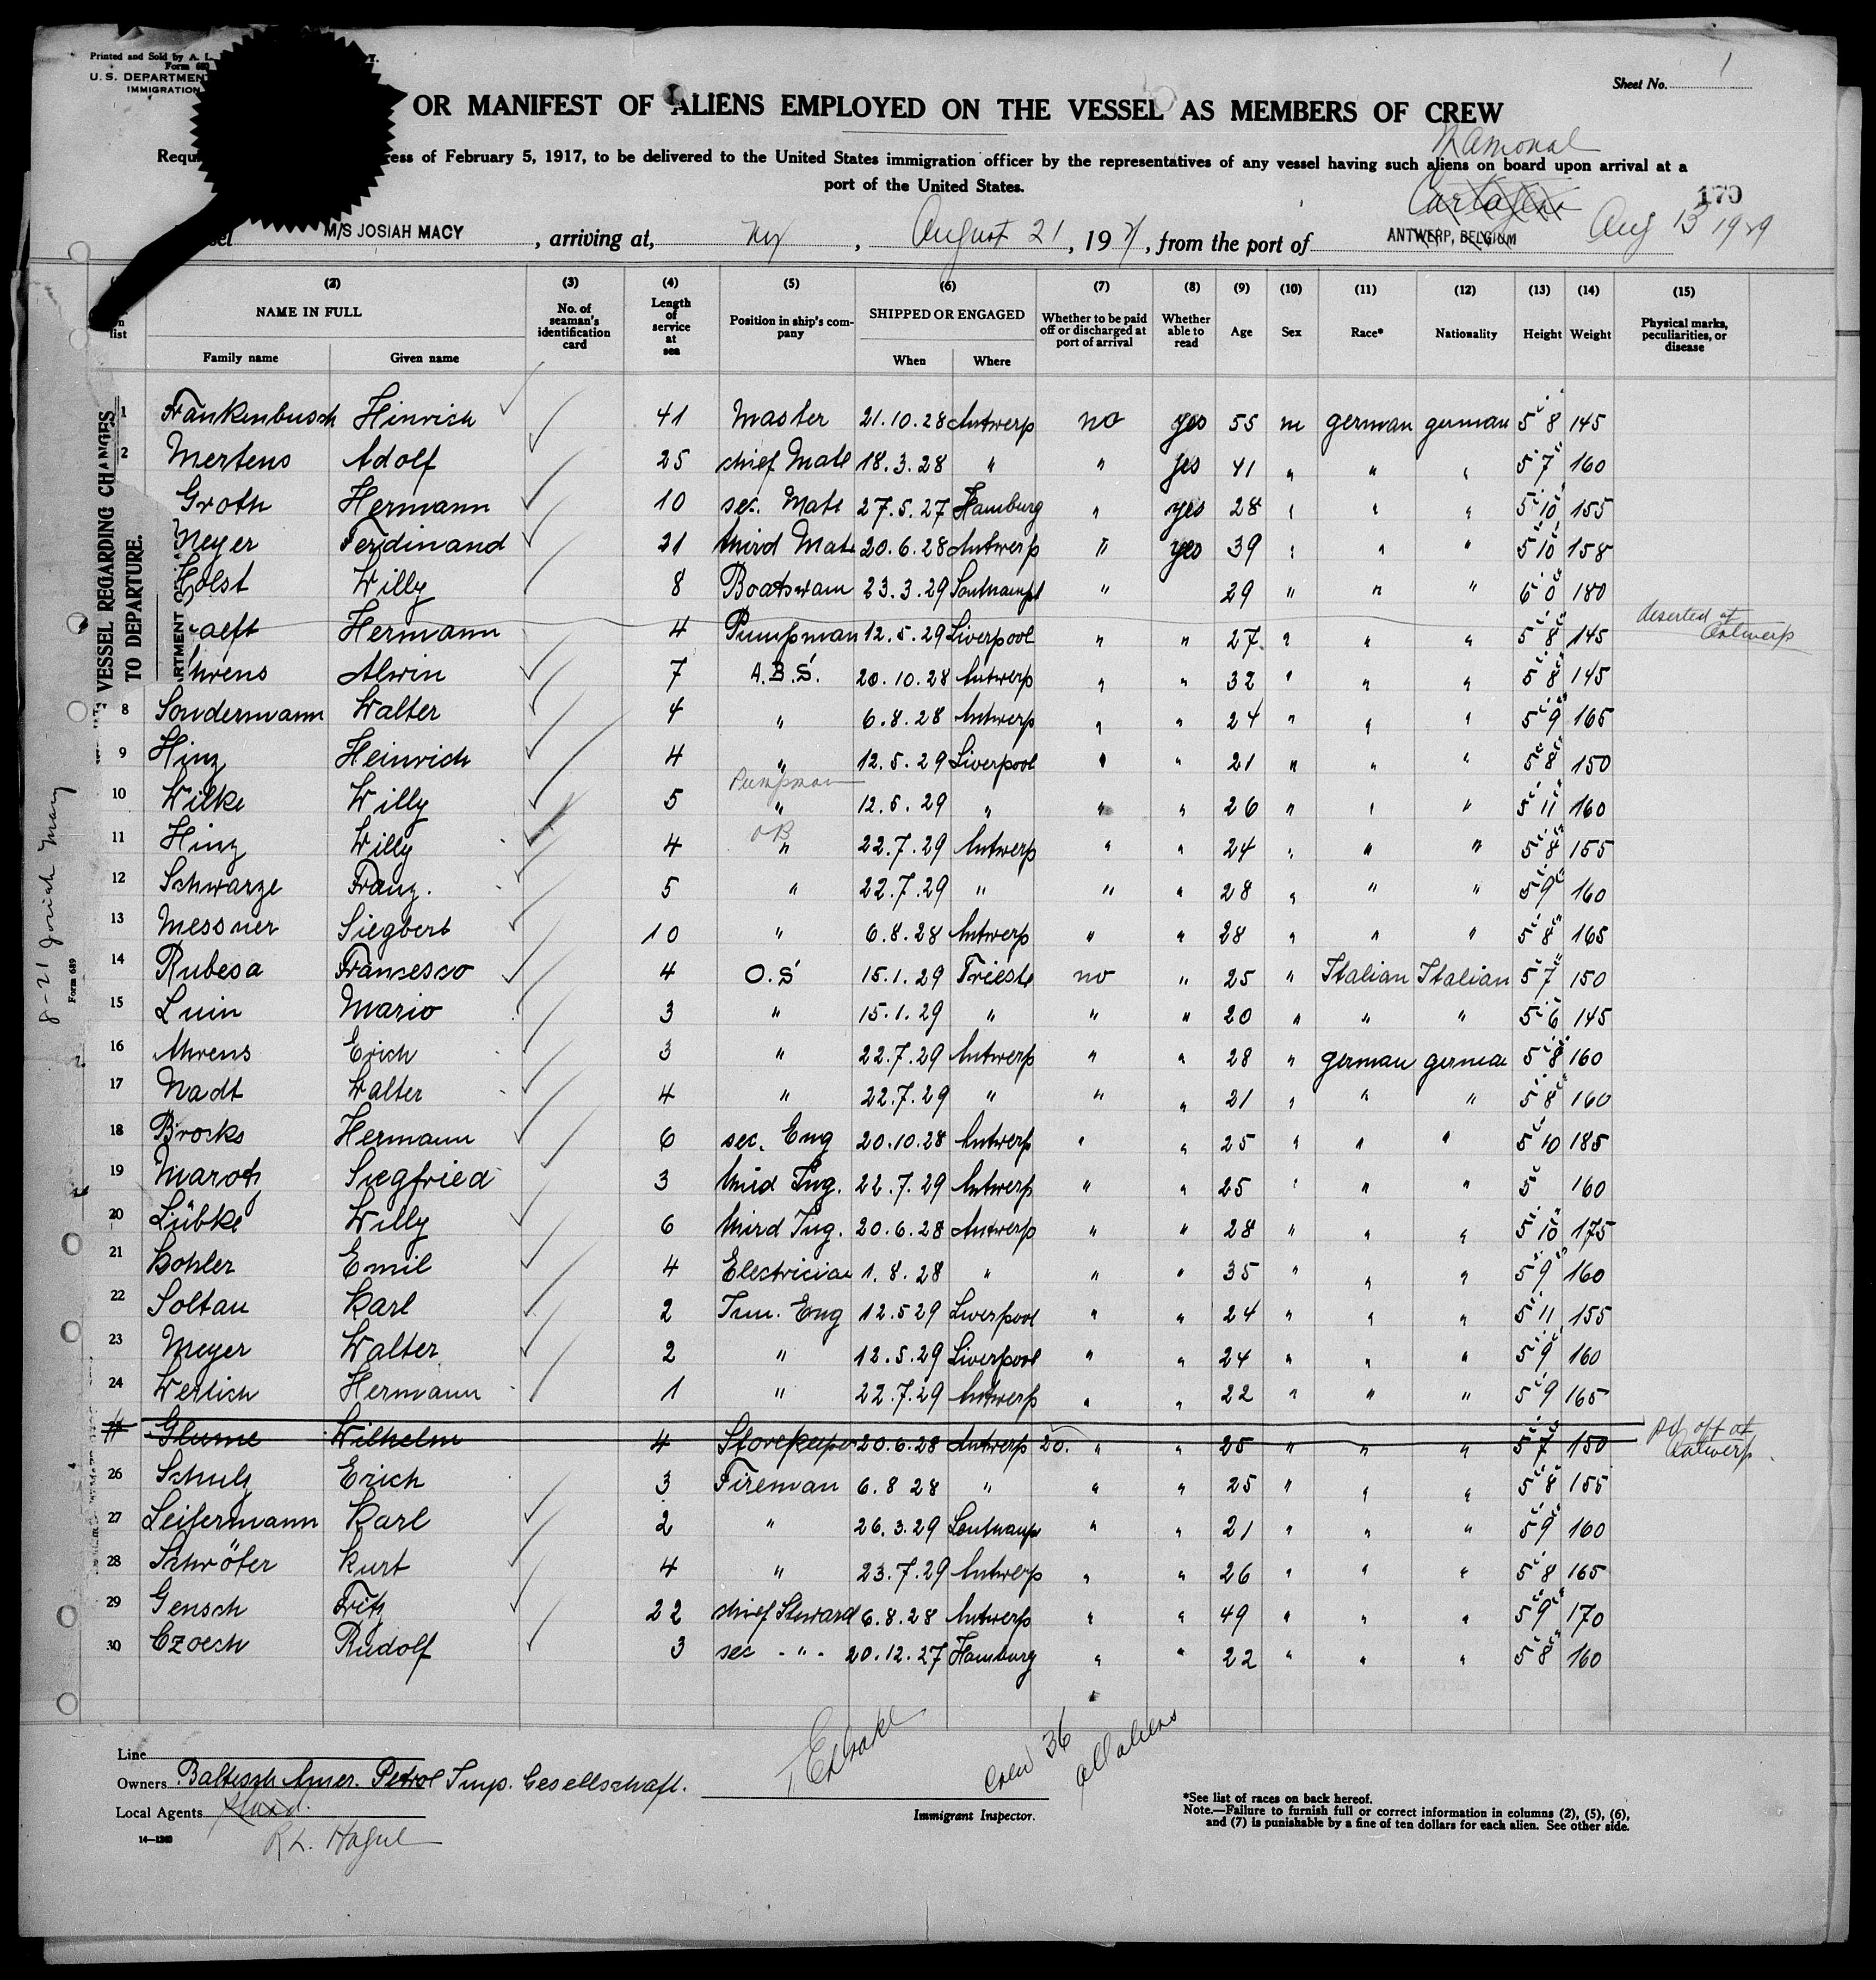 Printed and Sold by A. L.
Form 689
U. S. DEPARTMENT
IMMIGRATION
Sheet No. 1
OR MANIFEST OF ALIENS EMPLOYED ON THE VESSEL AS MEMBERS OF CREW
Mamonal
ress of February 5, 1917, to be delivered to the United States immigration officer by the representatives of any vessel having such aliens on board upon arrival at a
port of the United States.
Cartagena
170
M/S JOSIAH MACY, arriving at, NY, August 21, 19, from the port of ANTWERP, BELGIUM Aug 13 1929
(2) (3) (4) (5) (6) (7) (8) (9) (10) (11) (12) (13) (14) (15)
NAME IN FULL No. of seaman's identification card Length of service at sea Position in ship's company SHIPPED OR ENGAGED Whether to be paid off or discharged at port of arrival Whether able to read Age Sex Race* Nationality Height Weight Physical marks, peculiarities, or disease
list Family name Given name When Where
1 Frankenbusch Hinrich 41 Master 21.10.28 Antwerp no yes 55 m german german 5 8 145
2 Mertens Adolf 25 chief Mate 18.3.28 " " yes 41 " " " 5 7 160
Groth Hermann 10 sec. Mate 27.5.27 Hamburg " yes 28 " " " 5 10 155
Meyer Ferdinand 21 third Mate 20.6.28 Antwerp " yes 39 " " " 5 10 158
Holst Willy 8 Boatswain 23.3.29 Southampt " 29 " " " 6 0 180
aeft Hermann 4 Pumpman 12.5.29 Liverpool " " 27 " " " 5 8 145 deserted at Antwerp
hrens Alwin 7 A.B.S. 20.10.28 Antwerp " " 32 " " " 5 8 145
8 Sondermann Walter 4 " 6.8.28 Antwerp " " 24 " " " 5 9 165
9 Hinz Heinrich 4 " 12.5.29 Liverpool " " 21 " " " 5 8 150
Pumpman
10 Wilke Willy 5 " 12.5.29 " " " 26 " " " 5 11 160
11 Hinz Willy 4 " 22.7.29 Antwerp " " 24 " " " 5 8 155
12 Schwarze Franz. 5 " 22.7.29 " " " 28 " " " 5 9 160
13 Messner Siegbert 10 " 6.8.28 Antwerp " " 28 " " " 5 8 165
14 Rubesa Francesco 4 O.S 15.1.29 Trieste no " 25 " Italian Italian 5 7 150
15 Luin Mario 3 " 15.1.29 " " " 20 " " " 5 6 145
16 Ahrens Erich 3 " 22.7.29 Antwerp " " 28 " german german 5 8 160
17 Nadt Walter 4 " 22.7.29 " " " 21 " " " 5 8 160
18 Brocks Hermann 6 sec. Eng 20.10.28 Antwerp " " 25 " " " 5 10 185
19 Siegfried 3 third Ing. 22.7.29 Antwerp " " 25 " " " 5 160
20 Lübke Willy 6 third Ing. 20.6.28 Antwerp " " 28 " " " 5 10 175
21 Kohler Emil 4 Electrician 1.8.28 " " " 35 " " " 5 9 160
22 Soltau Karl 2 Jun. Eng 12.5 29 Liverpool " " 24 " " " 5 11 155
23 Meyer Walter 2 " 12.5.29 Liverpool " " 24 " " " 5 9 160
24 Werlich Hermann 1 " 22.7.29 Antwerp " " 22 " " " 5 9 165
Glume Wilhelm 4 Storekeeper 20.6.28 Antwerp 20. " " 25 " " " 5 7 150 pd off at Antwerp
26 Schulz Erich 3 Fireman 6.8 28 " " " 25 " " " 5 8 155
27 Leitermann Karl 2 " 26.3.29 Southamp " " 21 " " " 5 9 160
28 Schröter Kurt 4 " 23.7.29 Antwerp " " 26 " " " 5 8 165
29 Gensch Fritz 22 chief Steward 6.8.28 Antwerp " " 49 " " " 5 9 170
30 Czoech Rudolf 3 sec - " - 20.12.27 Hamburg " " 22 " " " 5 8 160
VESSEL REGARDING CHANGES
TO DEPARTURE.
8-21 Josiah Macy
Form 689
Line
Owners Baltisch Amer. Petrol Imp. Gesellschaft.
Local Agents
R.L. Hague
14—1240
Crew 36
all aliens
Immigrant Inspector.
*See list of races on back hereof.
Note.—Failure to furnish full or correct information in columns (2), (5), (6),
and (7) is punishable by a fine of ten dollars for each alien. See other side.